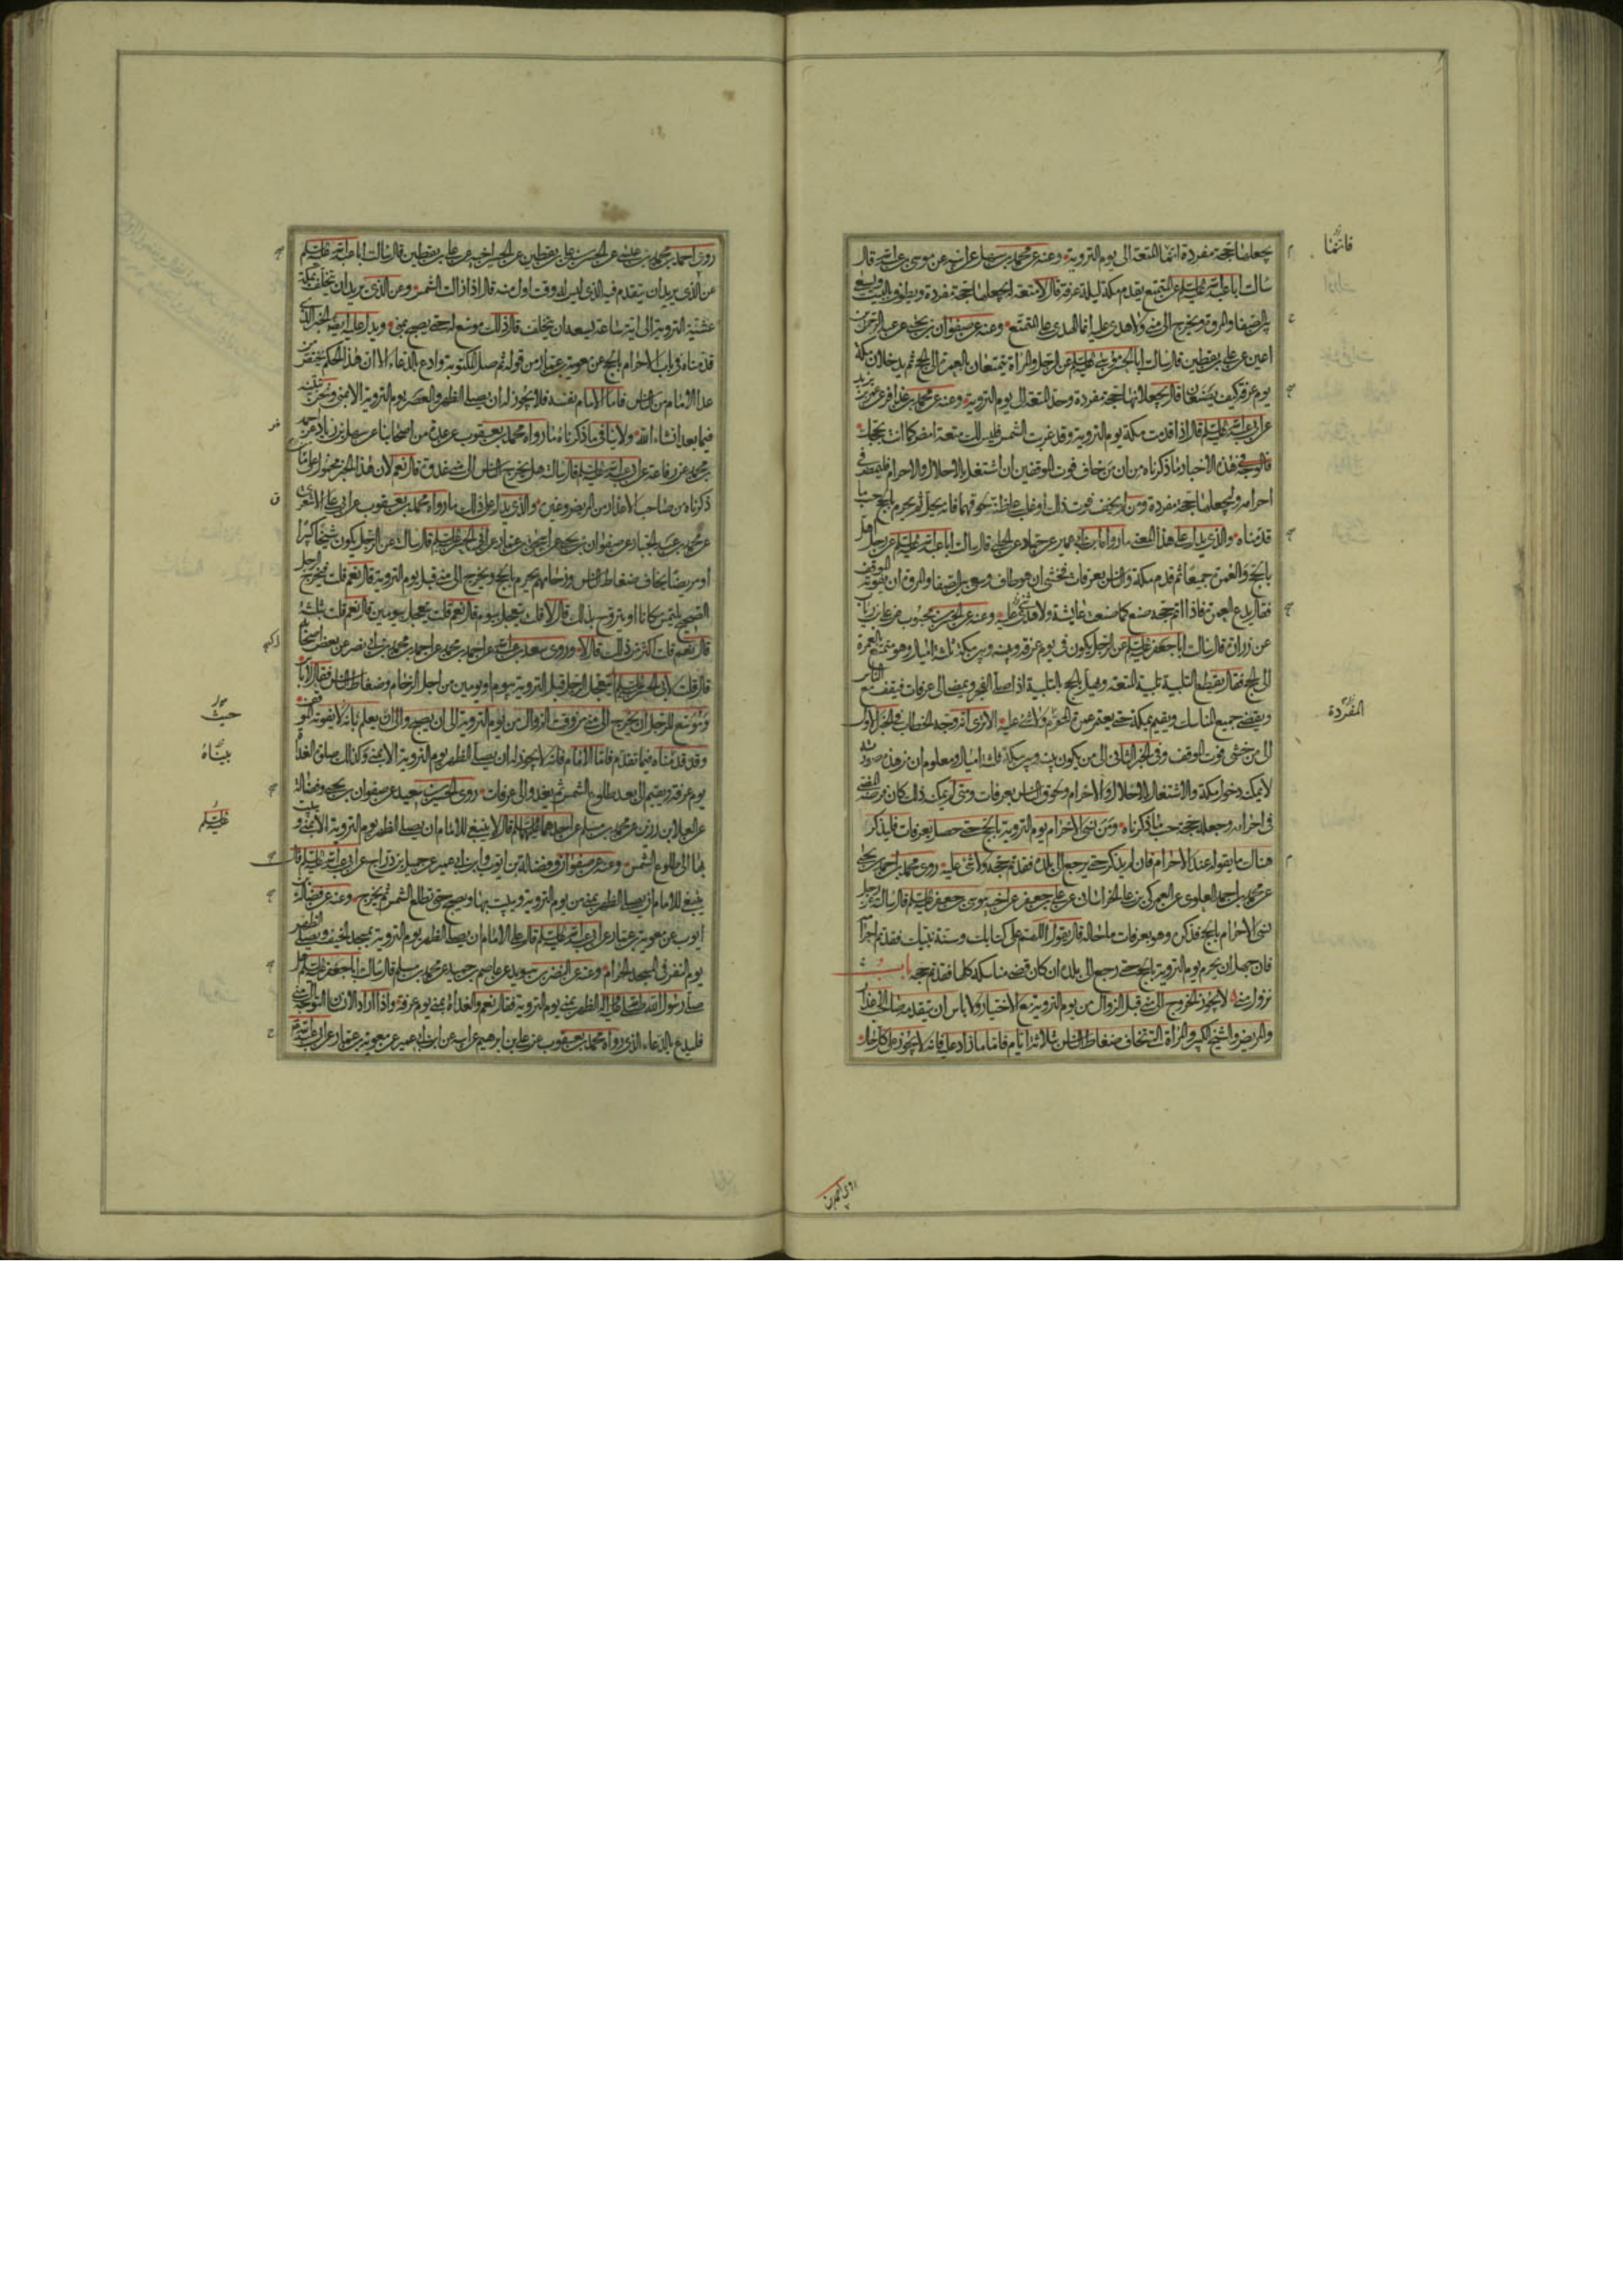 يجعلها حجة مفردة انما المتعة الى يوم التروية وعنه عن محمد بن سهل عن ابيه عن موسى بن عبدالله قال
سالت ابا عبدالله عليلم عن المتمتع يقدم مكة ليلة عرفة قال لا متعة له يجعلها حجة مفردة ويطوف بالبيت ويسعى
بين الصفا والمروة ويخرج الى منى ولا هدى عليه انما الهدى على المتمتع وعنه عن صفوان بن يحيى عن عبد الرحمن بن
اعين عن على بن يقطين قال سالت ابا الحسن موسى عليلم عن الرجل والمراة يتمتعان بالعمرة الى الحج ثم يدخلان مكة
يوم عرفة كيف يصنعان قال يجعلانها حجة مفردة وحد المتعة الى يوم التروية وعنه عن محمد بن عذافر عن عمر بن يزيد
عن ابى عبدالله عليلم قال اذا قدمت مكة يوم التروية وقد غربت الشمس فليس لك متعة امض كما انت بحجك
فالوجه فى هذه الاخبار ما ذكرناه من ان من خاف فوت الموقفين ان اشتغل بالاحلال والاحرام فليمض فى
احرامه وليجعلها حجة مفردة ومن لم يخف فوت ذلك او غلب على ظنه لحوقهما فانه يحل ثم يحرم بالحج حسب ما
قدمناه والذى يدل على هذا المعنى ما رواه ابن ابى عمير عن حماد عن الحلبى قال سالت ابا عبدالله عليلم عن رجل اهل
بالحج والعمرة جميعا ثم قدم مكة والناس بعرفات فخشى ان هو طاف وسعى بين الصفا والمروة ان يفوته الموقف
فقال يدع العمرة فاذا اتم حجه صنع كما صنعت عايشة ولا هدى عليه وعنه عن الحسن بن محبوب عن على بن رياب
عن زرارة قال سالت ابا جعفر عليلم عن الرجل يكون فى يوم عرفة وبينه وبين مكة ثلثة اميال وهو متمتع بالعمرة
الى الحج فقال يقطع التلبية تلبية المتعة ويهل بالحج بالتلبية اذا صلى الفجر ويمضى الى عرفات فيقف مع الناس
ويقضى جميع المناسك ويقيم بمكة حتى يعتمر عمرة المحرم ولا شئ عليه الا ترى انه وجه الخطاب فى الخبر الاول
الى من خشى فوت الموقف وفى الخبر الثانى الى من يكون بينه وبين مكة ثلثة اميال ومعلوم ان من هذه صورته
لا يمكنه دخول مكة والاشتغال بالاحلال والاحرام ولحوق الناس بعرفات ومتى لم يمكنه ذلك كان فرضه المضى
فى احرامه وجعله حجة حسب ما ذكرناه ومن نسى الاحرام يوم التروية بالحج حتى حصل بعرفات فليذكر
هناك ما يقوله عند الاحرام فان لم يذكر حتى يرجع الى بلده فقد تم حجه ولا شئ عليه روى محمد بن احمد بن يحيى
عن محمد بن احمد العلوى عن العمركى بن على الخراسانى عن على بن جعفر عن اخيه موسى بن جعفر عليلم قال سالته عن رجل
نسى الاحرام بالحج فذكر وهو بعرفات ما حاله قال يقول اللهم على كتابك وسنة نبيك فقد تم احرامه
فان جهل ان يحرم يوم التروية بالحج حتى رجع الى بلده ان كان قضى مناسكه كلها فقد تم حجه باب
نزول منى لا يجوز الخروج الى منى قبل الزوال من يوم التروية مع الاختيار ولا باس ان يتقدمه صاحب الاعذار
والمريض والشيخ الكبير والمراة التى تخاف ضغاط الناس بثلاثة ايام فاما ما زاد عليه فانه لا يجوز على كل حال
فانهما
المفردة
روى احمد بن
روى احمد بن محمد بن عيسى عن الحسن بن على بن يقطين عن الحسين اخيه عن على بن يقطين قال سالت ابا عبدالله عليلم
عن الذى يريد ان يتقدم فيه الذى ليس له وقت اول منه قال اذا زالت الشمس وعن الذى يريد ان يتخلف بمكة
عشية التروية الى اية ساعة يسعه ان يتخلف قال ذلك موسع له حتى يصبح بمنى ويدل عليه ايضا الخبر الذى
قدمناه فى باب الاحرام بالحج عن معوية بن عمار من قوله ثم صل المكتوبة وادع بالدعاء الا ان هذا الحكم يختص من
عدا الامام من الناس فاما الامام نفسه فلا يجوز له ان يصلى الظهر والعصر يوم التروية الا بمنى ونحن نبينه
فيما بعد انشاء الله ولا ينافى ما ذكرناه ما رواه محمد بن يعقوب عن عدة من اصحابنا عن سهل بن زياد عن احمد
بن محمد عن رفاعة عن ابى عبدالله عليلم قال سالته هل يخرج الناس الى منى غدوة قال نعم لان هذا الخبر محمول على ما
ذكرناه من صاحب الاعذار من المريض وغيره والذى يدل على ذلك ما رواه محمد بن يعقوب عن ابى على الاشعرى
عن محمد بن عبد الجبار عن صفوان بن يحيى عن اسحق بن عمار عن ابى الحسن عليلم قال سالته عن الرجل يكون شيخا كبيرا
او مريضا يخاف ضغاط الناس وزحامهم يحرم بالحج ويخرج الى منى قبل يوم التروية قال نعم قلت فيخرج الرجل
الصحيح يلتمس مكانا او يتروح بذلك قال لا قلت يتعجل بيوم قال نعم قلت يتعجل بيومين قال نعم قلت ثلثة
قال نعم قلت اكثر من ذلك قال لا وروى سعد بن عبدالله عن احمد بن محمد عن احمد بن محمد بن ابى نصر عن بعض اصحابه
قال قلت لابى الحسن عليلم يتعجل الرجل قبل التروية بيوم او يومين من اجل الزحام وضغاط الناس فقال لا باس
وموسع للرجل ان يخرج الى منى من وقت الزوال من يوم التروية الى ان يصبح والى ان يعلم بانه لا يفوته الموقف
وقد قدمناه فيما تقدم فاما الامام فانه لا يجوز له ان يصلى الظهر يوم التروية الا بمنى وكذلك صلوة الغداة
يوم عرفة ويقيم الى بعد طلوع الشمس ثم يغدو الى عرفات روى الحسين بن سعيد عن صفوان بن يحيى وفضالة
عن العلا بن رزين عن محمد بن مسلم عن احدهما عليهلم قال لا ينبغى للامام ان يصلى الظهر يوم التروية الا بمنى ويبيت
بها الى طلوع الشمس وعنه عن صفوان وفضالة بن ايوب وابن ابى عمير عن جميل بن دراج عن ابى عبدالله عليلم قال
ينبغى للامام ان يصلى الظهر بمنى من يوم التروية ويبيت بها ويصبح حتى تطلع الشمس ثم يخرج وعنه عن فضالة بن
ايوب عن معوية بن عمار عن ابى عبدالله عليلم قال على الامام ان يصلى الظهر يوم التروية بمسجد الخيف ويصلى الظهر
يوم النفر فى المسجد الحرام وعنه عن النضر بن سويد عن عاصم بن حميد عن محمد بن مسلم قال سالت ابا جعفر عليلم هل
صلى رسول الله صلى الله عليه واله الظهر بمنى يوم التروية فقال نعم والغداة بمنى يوم عرفة واذا اراد الانسان التوجه الى منى
فليدع بالدعاء الذى رواه محمد بن يعقوب عن على بن ابرهيم عن ابيه عن ابن ابى عمير عن معوية بن عمار عن ابى عبدالله
حيث
بيناه
عليلم